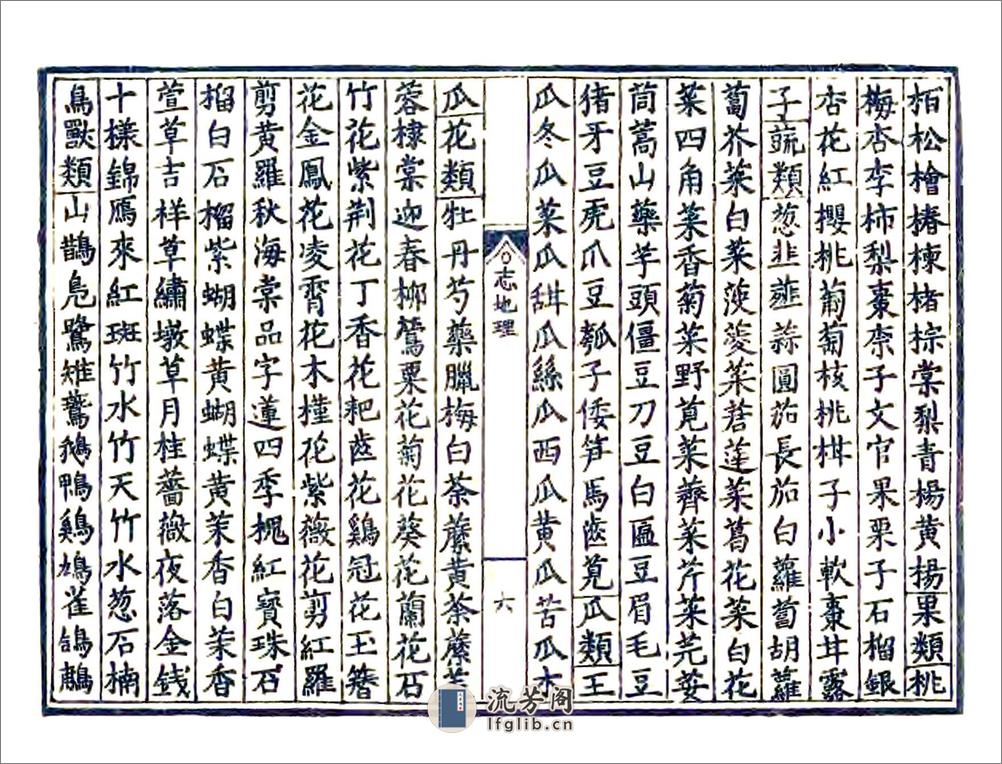 栢松檜椿楝楮棕棠梨青楊黄楊果類桃
梅杏李柿梨棗柰子文官果栗子石榴銀
杏花紅櫻桃葡萄核桃柑子小軟棗甘露
子蔬類葱韭薤蒜圓茄長茄白蘿蔔胡蘿
蔔芥菜白菜菠薐菜莙薘菜葛花菜白花
菜四角菜香菊菜野莧菜薺菜芹菜芫荽
茼蒿山藥芋頭僵豆刀豆白匾豆眉毛豆
猪牙豆虎爪豆瓠子倭笋馬齒莧瓜類王
瓜冬瓜菜瓜甜瓜絲瓜西瓜黄瓜苦瓜木
志地理
六
瓜花類牡丹芍藥臘梅白荼蘼黄荼蘼芙
蓉棣棠迎春柳鶯粟花菊花葵花蘭花石
竹花紫荆花丁香花耙齒花鷄冠花玉簪
花金鳳花凌霄花木槿花紫薇花剪紅羅
剪黄羅秋海棠品字蓮四季槐紅寶珠石
榴白石榴紫蝴蝶黄蝴蝶黄茉香白茉香
萱草吉祥草繡墩草月桂薔薇夜落金錢
十樣錦鴈來紅斑竹水竹天竹水葱石楠
鳥獸類山鵲鳧鷺雉鷔鵝鴨鷄鳩雀鴿鷫
流芳阁
lfglib.cn